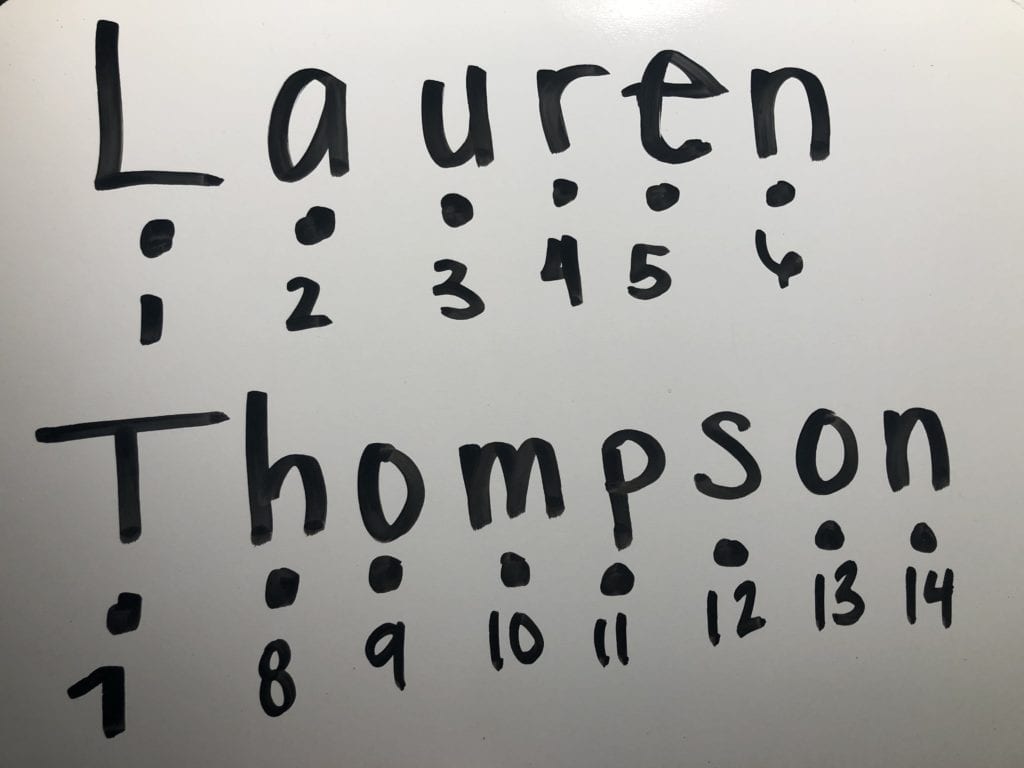 Lauren
1 2 3 4 5 6
Thompson
7 8 9 10 11 12 13 14